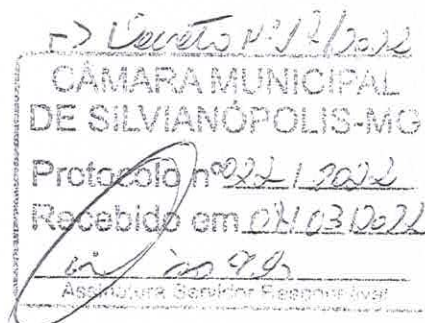 -> Decreto Nº 17/2022
CÂMARA MUNICIPAL
DE SILVIANÓPOLIS-MG
Protocolo nº 22 / 2022
Recebido em 07/03/2022
Assinatura Servidor Responsável